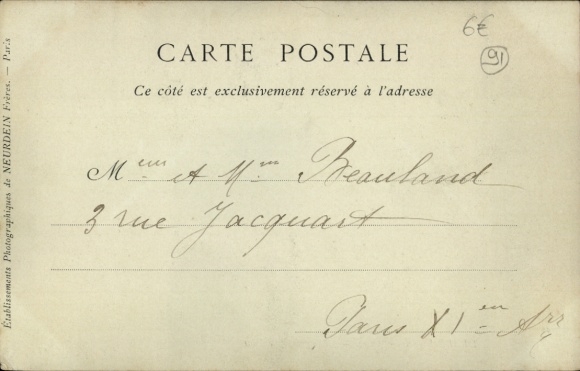 6€
91
CARTE POSTALE
Ce côté est exclusivement réservé à l'adresse
Meur et Mme Beauland
3 rue Jacquart
Paris XIen Arr
Établissements Photographiques de NEURDEIN Frères. — Paris